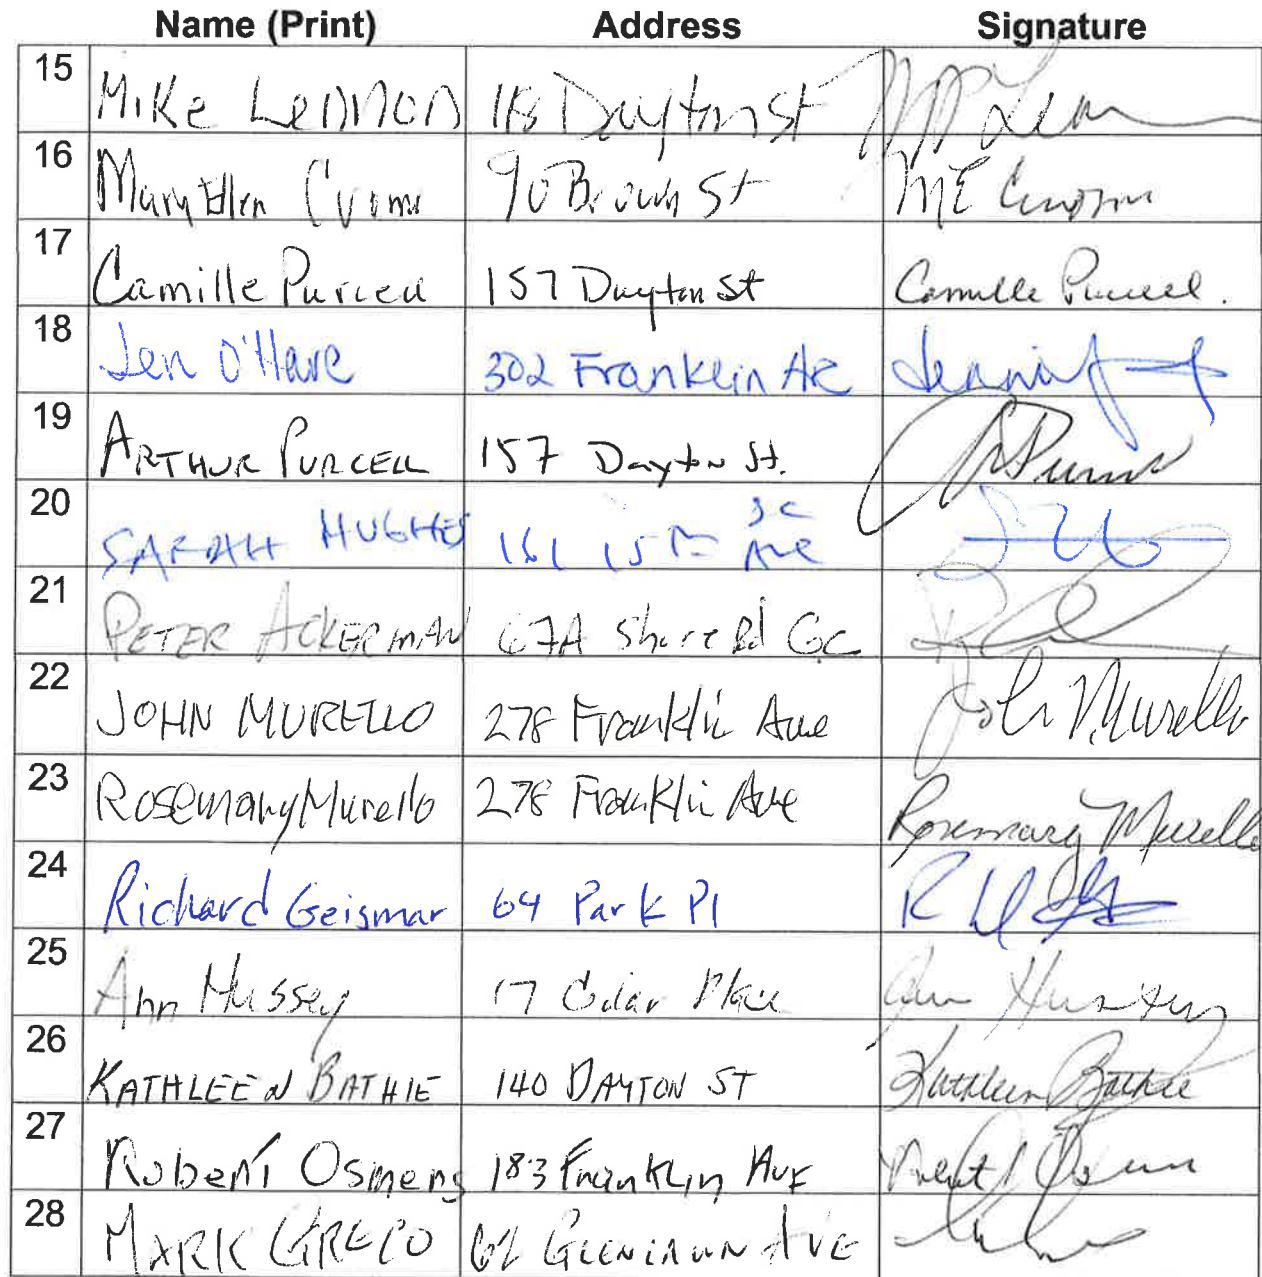 Name (Print) Address Signature
15 Mike Lennon 118 Dayton St
16 Mary Ellen Cuomo 90 Brown St ME Cuomo
17 Camille Purcell 157 Dayton St Camille Purcell.
18 Jen O'Hare 302 Franklin Ave
19 Arthur Purcell 157 Dayton St.
20 SARAH HUGHES 161 15th Ave SC
21 Peter Ackerman 67A Shore Rd GC
22 JOHN MURELLO 278 Franklin Ave John Murello
23 Rosemary Murello 278 Franklin Ave Rosemary Murello
24 Richard Geismar 64 Park Pl
25 Ann Hussey 17 Cedar Place Ann Hussey
26 KATHLEEN BATHIE 140 DAYTON ST Kathleen Bathie
27 Robert Osmers 183 Franklin Ave
28 MARK GRECO Glenlawn AVE